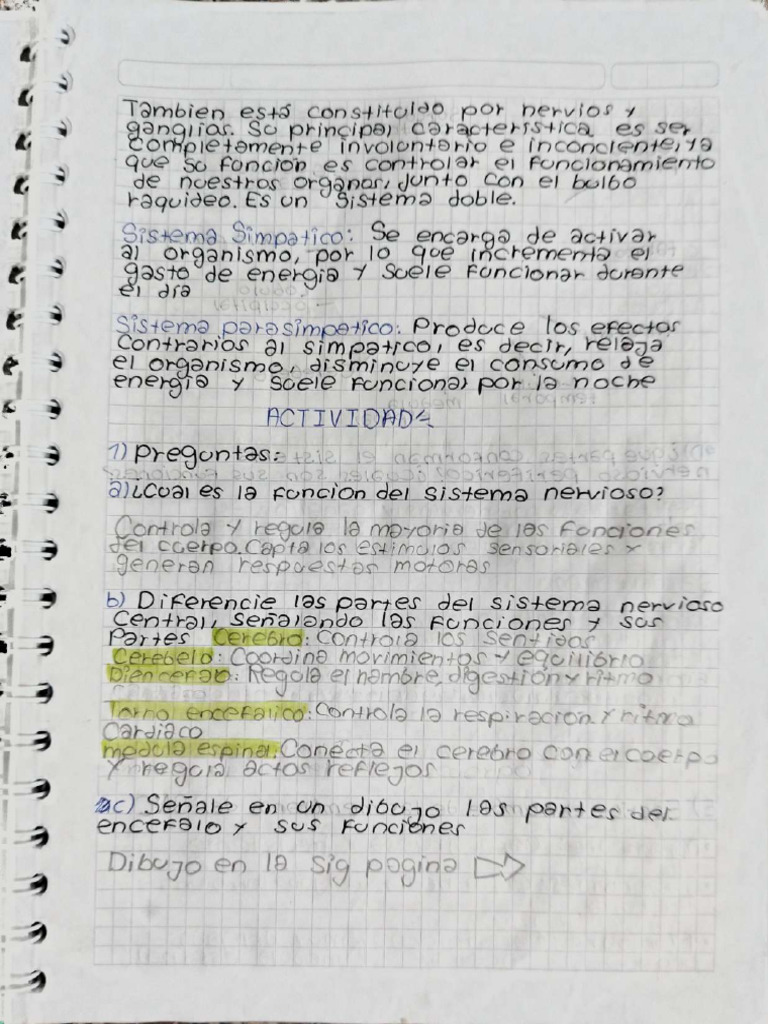 Tambien está constituido por nervios y
ganglias. Su principal caracteristica es ser
completamente involuntario e inconciente, ya
que su funcion es controlar el funcionamiento
de nuestros organos, junto con el bulbo
raquideo. Es un Sistema doble.
Sistema Simpatico: Se encarga de activar
al organismo, por lo que incrementa el
gasto de energia y suele funcionar durante
el dia
Sistema parasimpatico: Produce los efectos
Contrarios al simpatico, es decir, relaja
el organismo, disminuye el consumo de
energia y suele funcional por la noche
ACTIVIDAD
1) Preguntas:
a) ¿Cual es la funcion del sistema nervioso?
Controla y regula la mayoria de las funciones
del cuerpo. Capta los estimulos sensoriales y
generan respuestas motoras
b) Diferencie las partes del sistema nervioso
Central, señalando las funciones y sus
Partes Cerebro: Controla los sentidos
Cerebelo: Coordina movimientos y equilibrio
Diencefalo: Regula el hambre, digestion y ritmo
Torno encefalico: Controla la respiracion y ritmo
Cardiaco
medula espinal: Conecta el cerebro con el cuerpo
y regula actos reflejos
c) Señale en un dibujo las partes del
encefalo y sus funciones
Dibujo en la sig pagina